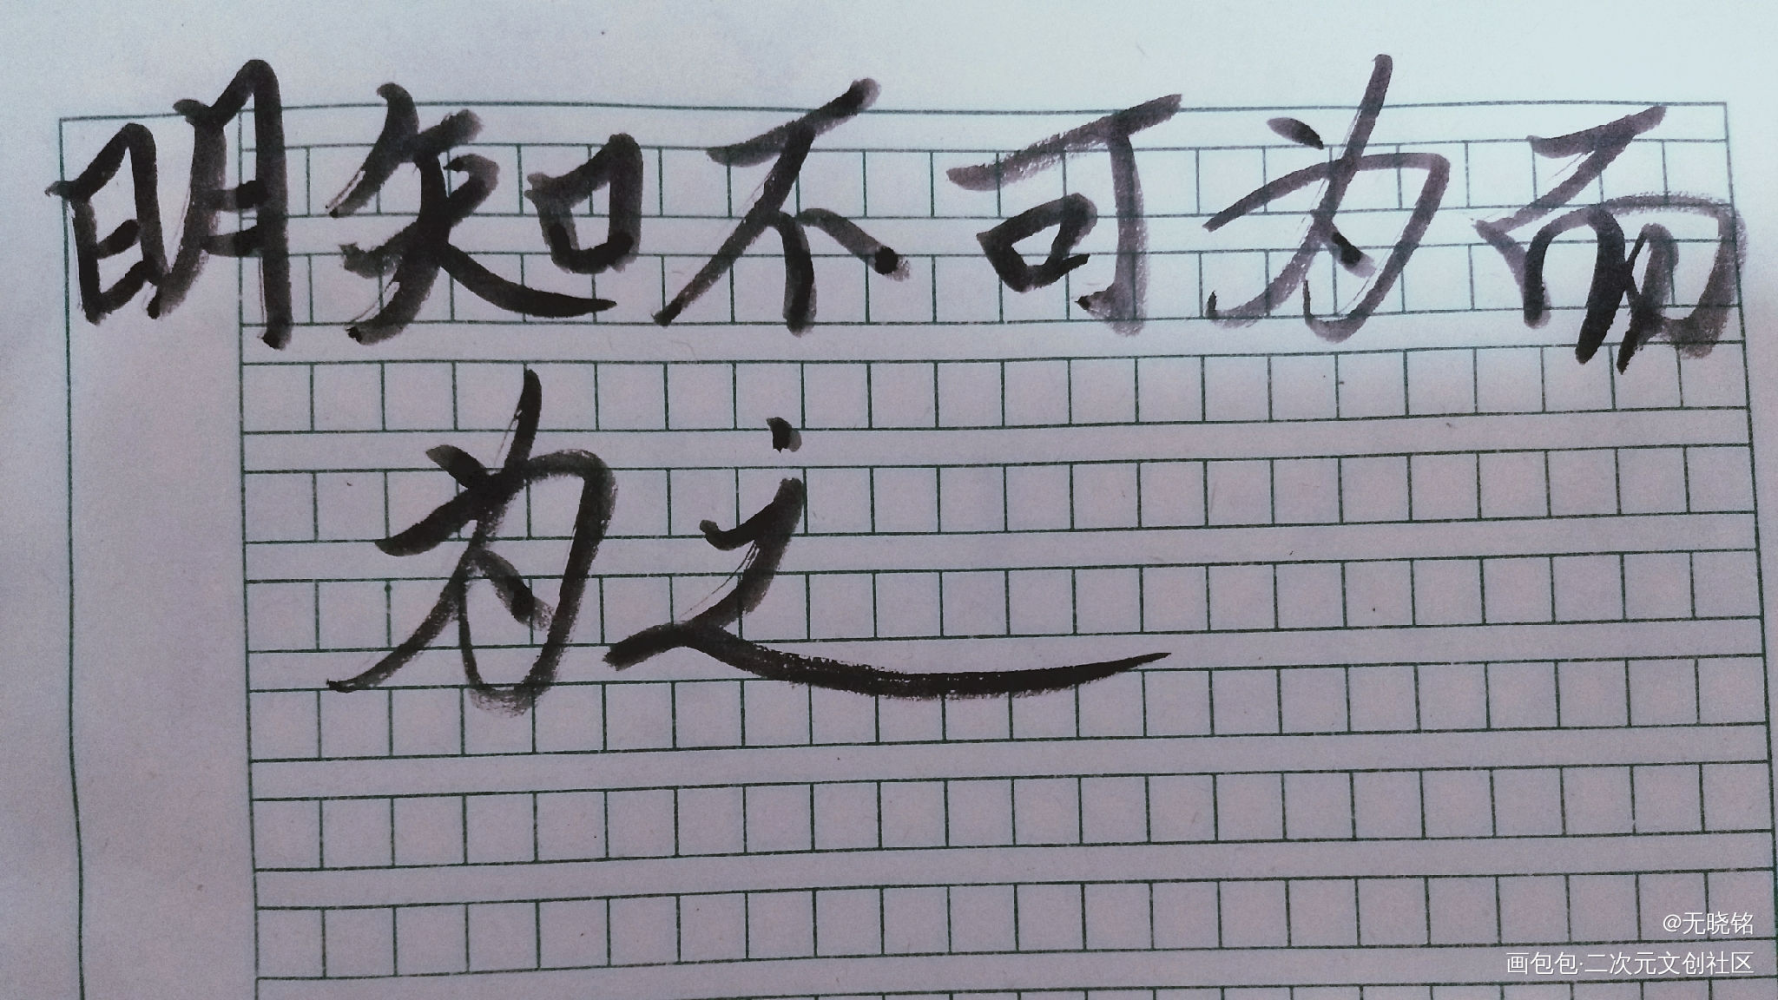 明知不可为而
为之
@无晓铭
画包包·二次元文创社区